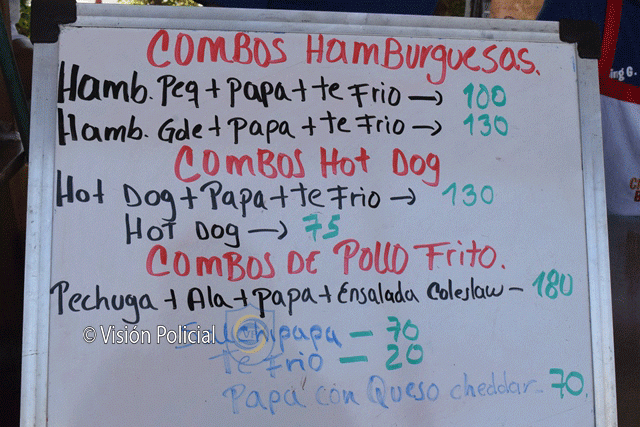 COMBOS HAMBURGUESAS.
Hamb. Peq + papa + te Frio → 100
Hamb. Gde + papa + te Frio → 130
COMBOS HOT DOG
Hot Dog + Papa + te Frio → 130
Hot Dog → 75
COMBOS DE POLLO FRITO.
Pechuga + Ala + papa + Ensalada Coleslaw - 180
© Visión Policial
Salchipapa - 70
te Frio - 20
Papa con Queso cheddar - 70
ing G.